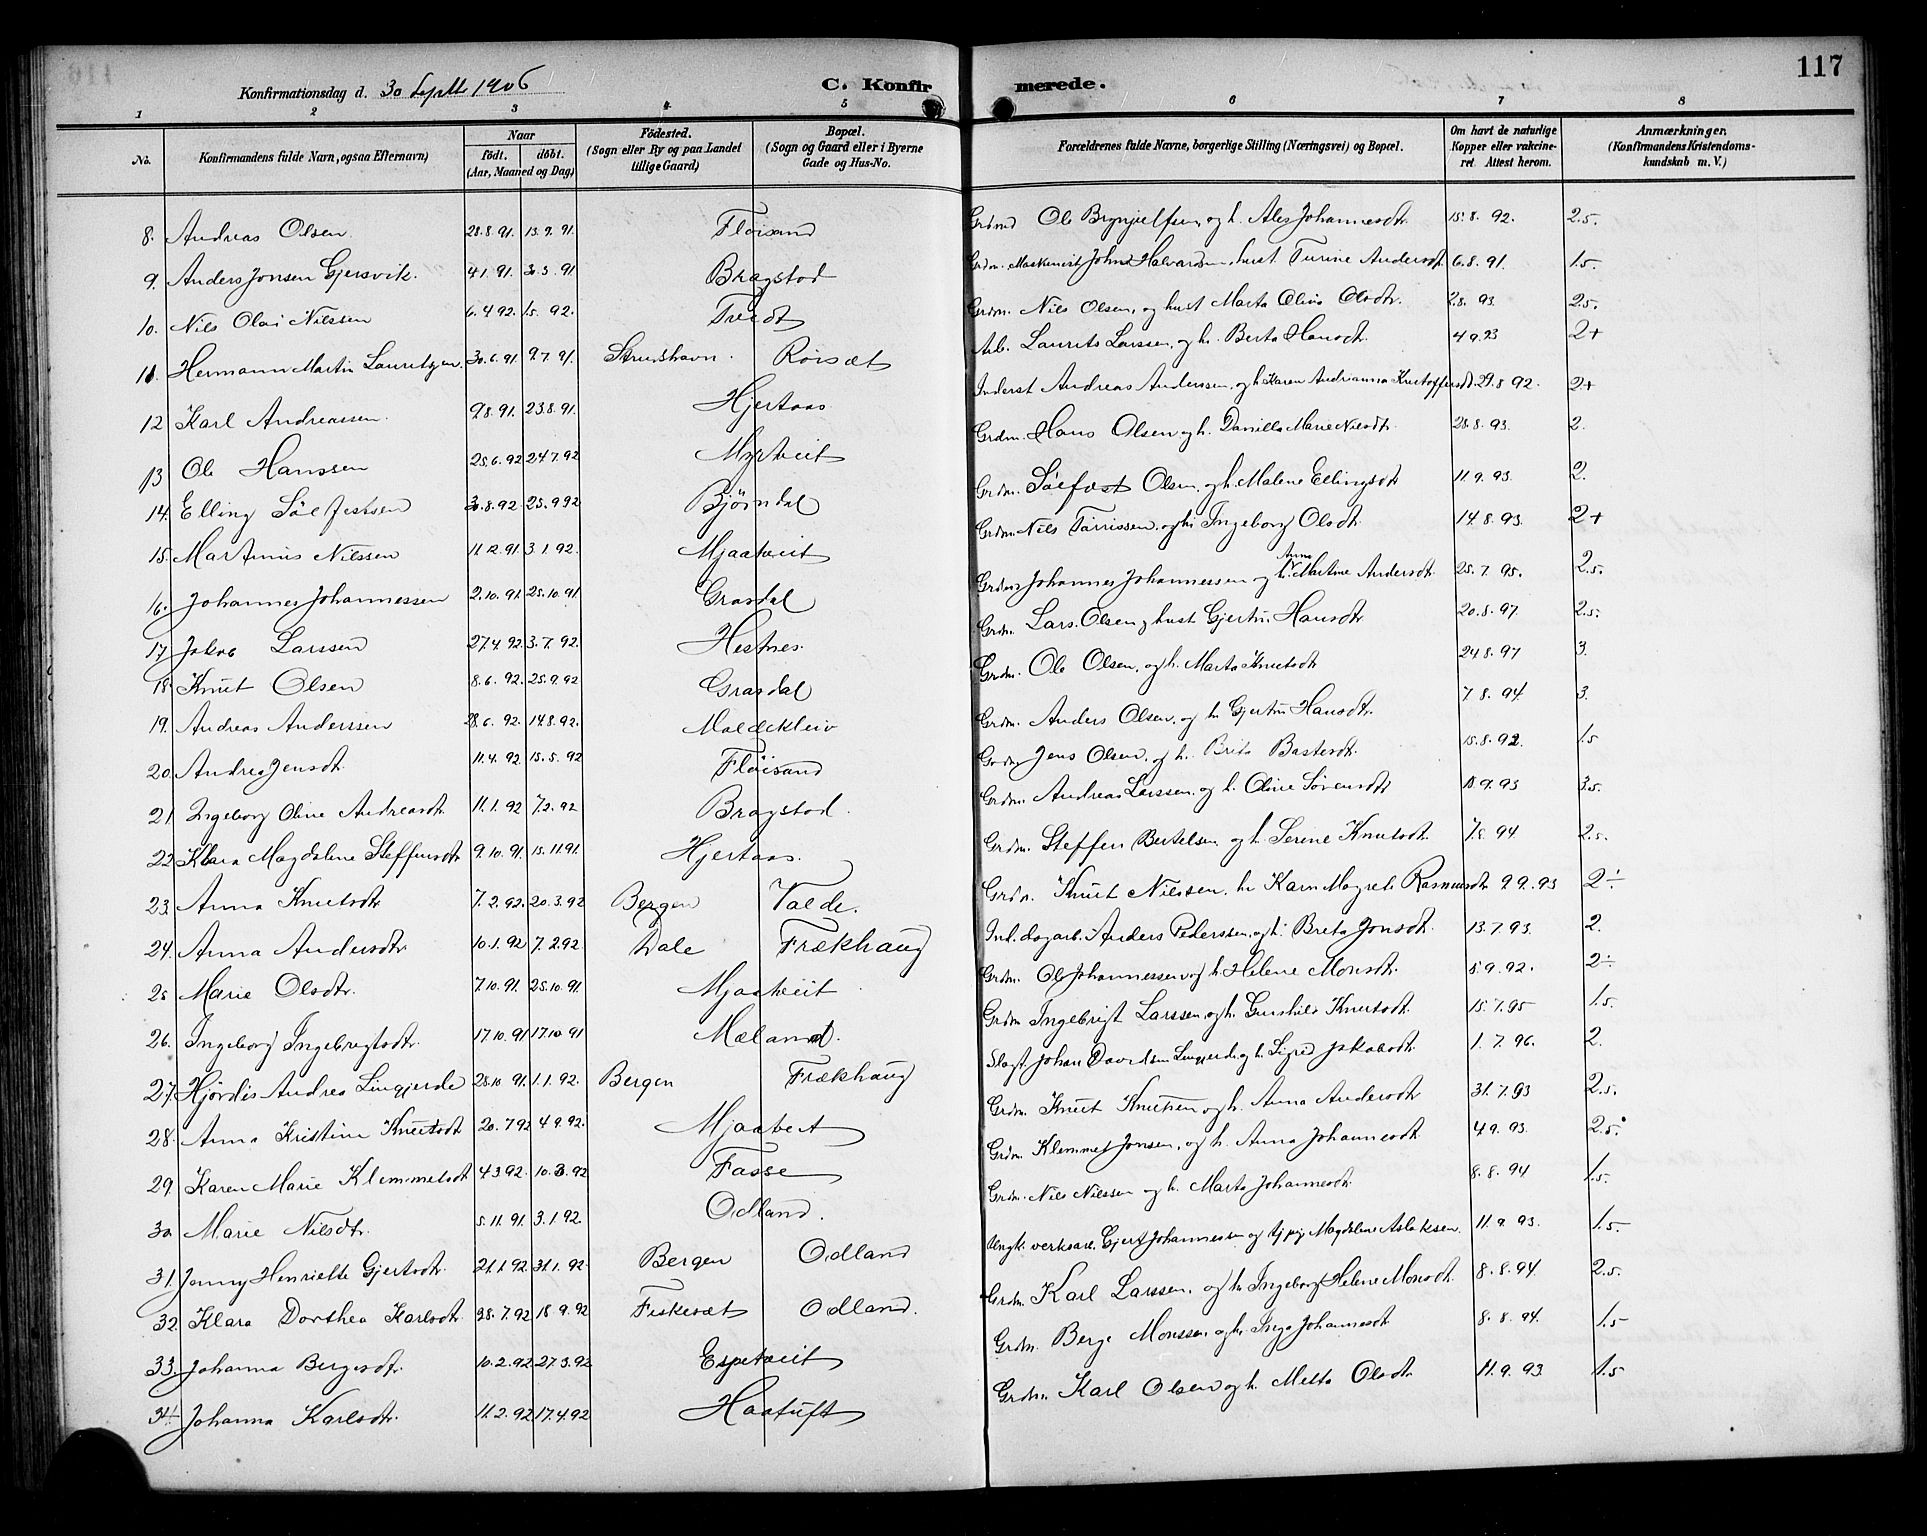 117
Konfirmationsdag d. 30 Septb 1906 C. Konfirmerede.
1 2 3 4 5 6 7 8
No. Konfirmandens fulde Navn, ogsaa Efternavn) Naar födt. döbt. (Aar, Maaned og Dag) Födested. (Sogn eller By og paa Landet tillige Gaard) Bopæl. (Sogn og Gaard eller i Byerne Gade og Hus-No. Forældrenes fulde Navne, borgerlige Stilling (Næringsvei) og Bopæl. Om havt de naturlige Kopper eller vakcineret. Attest herom. Anmærkninger. (Konfirmandens Kristendomskundskab m. V.)
8. Andreas Olsen 28.8.91. 13.9.91. Fløisand Grdmd Ole Brynjulfsen, og h. Ales Johannesdtr. 15.8.92. 2.5.
9. Anders Jonsen Gjersvik. 4.1.91. 30.3.91 Bragstad Grdm. Maskinist John Halvardsen, hust. Turine Andersdt. 6.8.91. 1.5.
10. Nils Olai Nilssen 6.4.92. 15. 92. Tveidt Grdm. Nils Olsen, og hust Marta Oline Olsdtr. 2.8.93. 2.5.
11. Hermann Martin Lauritzen. 30.6.91. 9.7.91. Skrudshavn. Rossæt Arb. Laurits Larssen, og h. Berta Hansdtr. 4 9.93 2+
12 Karl Andreassen. 9.8.91. 23.8.91. Hjertaas Inderst Andreas Anderssen, og h. Karen Andrianna Kristoffersdt. 29.8 92. 2+
13 Ole Hanssen 25.6.92 24.7.92 Myrtveit Grdm. Hans Olsen og h. Danilla Marie Nilsdtr. 28.8.93. 2.
14. Elling Sölfestsen 30.8.92. 25.9.92 Bjørndal Grdm. Sölfæst Olsen, og h. Malene Ellingsdt 11.9.93. 2.
15. Martinus Nilssen 11.12.91. 3.1.92. Mjaatveit Grdm. Nils Törrissen, og h. Ingeborg Olsdt. 14.8.93. 2+
16. Johannes Johannessen 2.10.91. 25.10.91 Grasdal Grdm. Johannes Johannessen og h. Anna Martine Andersdt. 25.7.95. 2.5.
17 Jakob Larssen 27.4.92. 3.7.92. Hestnes. Grdm. Lars Olsen og hust Gjertru Hansdt 20.8.97. 2.5.
18. Knut Olsen 8.6.92. 25.9.92 Grasdal Grdm. Ole Olsen, og h. Marta Knutsdt 24.8.97 3.
19. Andreas Anderssen 28.6.92. 14.8.92. Moldekleiv Grdm. Anders Olsen, og h. Gjertru Hansdt. 7.8.94 3.
20. Andrea Jensdt. 11.4.92. 15.5.92 Fløisand Grdm. Jens Olsen, og h. Brita Bastesdt. 15.8.92. 1.5
21. Ingeborg Oline Andreasdt. 11.1.92 7.2.92 Bragstad. Grdm. Andreas Larssen, og h. Oline Sörensdt 10.9.93 3.5.
22. Klara Magdalene Steffensdt 9.10.91. 15.11.91. Hjertaas. Grdm. Steffen Bertelsen og h. Serine Knutsdt. 7.8.94. 2.5.
23. Anna Knutsdt. 7.2.92. 20.3.92 Bergen Valde. Grdm. Knut Nilssen, h. Karn Magrete Rasmusdt 9.9.93 2÷
24. Anna Andersdtr. 10.1.92 7.2.92 Dale Frækhaug Ind. dagarb. Anders Pederssen, og h. Brita Jonsdt. 13.7.93. 2.
25 Marie Olsdtr. 7.10.91. 25.10.91. Mjaatveit Grdm. Ole Johannessen og h. Helene Monsdt. 5.9.92. 2÷
26. Ingeborg Ingebrigtsdtr. 17.10.91 17.10.91 Mæland. Grdm Ingebrigt Larssen, og h. Gunhild Knutsdt. 15.7.95 1.5.
27. Hjördis Andrea Lingjerde 28.10.91. 1.1.92. Bergen Frækhaug Slagt. Johan Davidsen Lingjerde, og h. Sigrid Jakobsdt. 1.7.96. 2.
28. Anna Kristine Knutsdt 20.7.92 4.9.92. Mjaatveit Grdm. Knut Knutsen og h. Anna Andersdt. 31.7.93 2.5.
29. Karen Marie Klemmetsdt 4.3.92. 10.3.92 Fosse Grdm. Klemmet Jonsen, og h. Anna Johannesdt. 4.9.93. 2.5.
30 Marie Nilsdtr. 5.11.91. 3.1.92. Odland. Grdm. Nils Nilssen og h. Marta Johannesdt. 8.8.94 1.5.
31. Jonny Henriette Gjertsdt. 21.1.92 31.1.92. Bergen Odland Ungk. verksarb. Gjert Johannessen og tj. pig. Magdalene Aslaksen. 11.9.93. 1.5-
32. Klara Dorthea Karlsdt. 28.7.92 18.9.92 Fiskesæt Odland. Grdm. Karl Larssen, og h. Ingeborg Helene Monsdt. 8.8.94. 2.5.
33. Johanna Bergesdt. 10.2.92 27.3.92 Espetveit Grdm. Berge Monssen og h. Inga Johannesdt 8.8.94. 1.5-
34. Johanna Karlsdt. 11.2.92 17.4.92 Haatuft Grdm. Karl Olsen og h. Metta Olsdt 11.9.93. 1.5